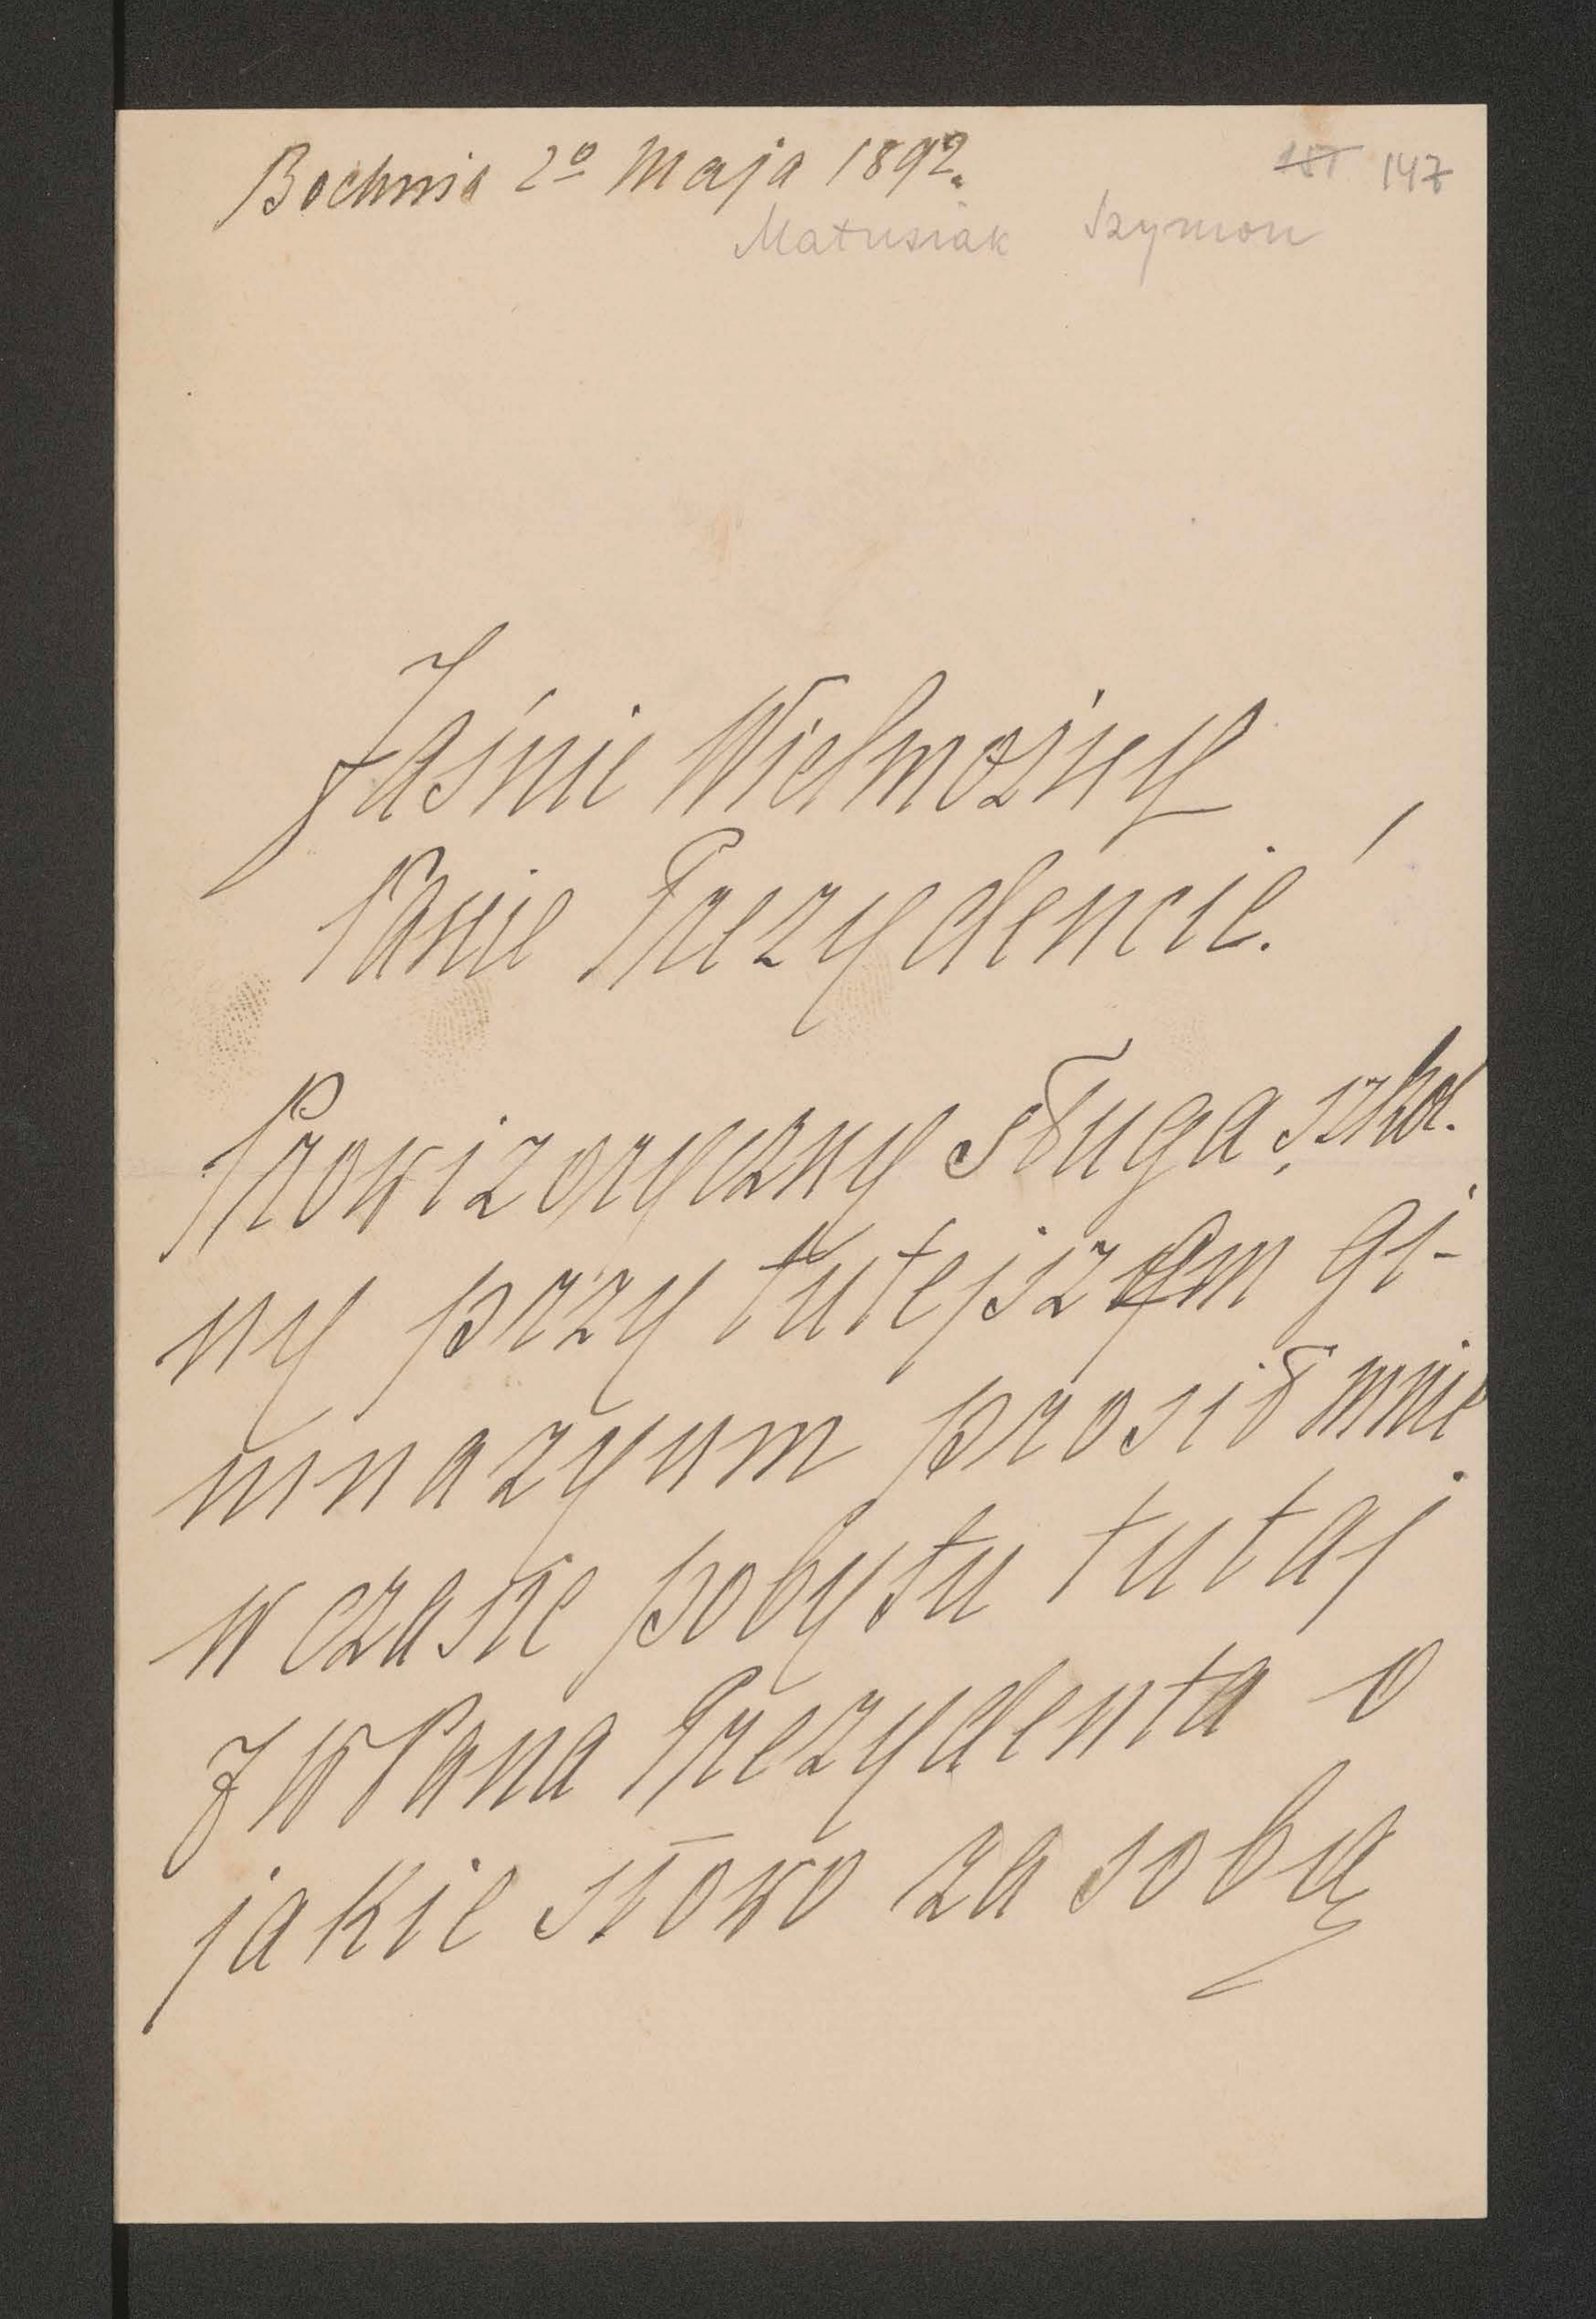 Bochnia 2º Maja 1892.
147
Matusiak Szymon
Jaśnie Wielmożny
Panie Prezydencie!
Prowizoryczny sługa szkol.
ny przy tutejszem gi-
mnazyum prosił mnie
w czasie pobytu tutaj
JWPana Prezydenta o
jakie słowo za sobą